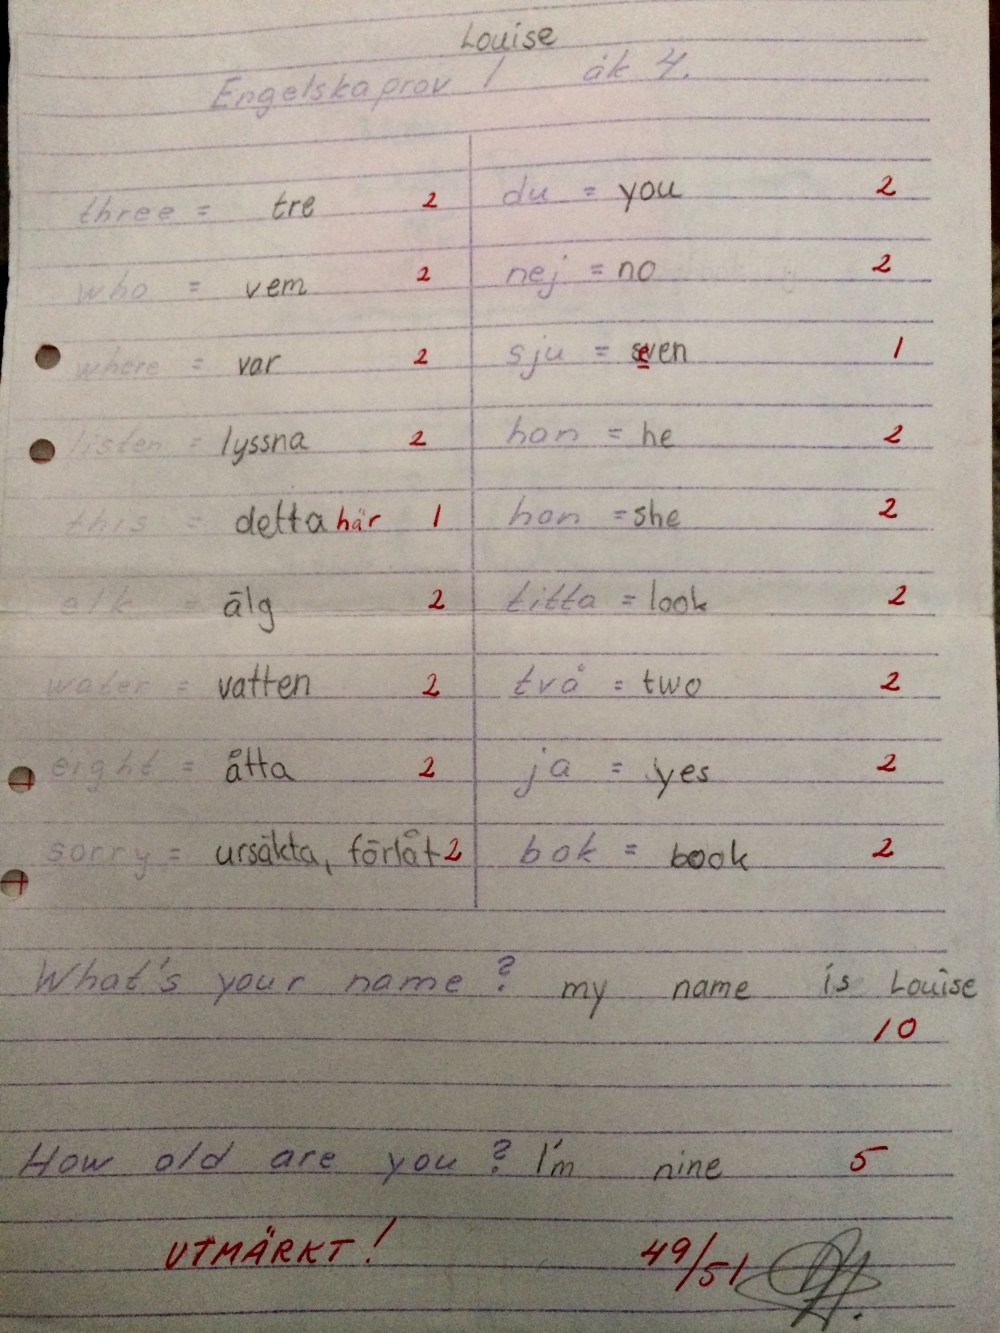 Louise
Engelskaprov 1 åk 4.
three = tre 2
who = vem 2
where = var 2
listen = lyssna 2
this = detta här 1
elk = älg 2
water = vatten 2
eight = åtta 2
sorry = ursäkta, förlåt 2
du = you 2
nej = no 2
sju = seven 1
han = he 2
hon = she 2
titta = look 2
två = two 2
ja = yes 2
bok = book 2
What's your name? my name is Louise
10
How old are you? I'm nine 5
UTMÄRKT! 49/51